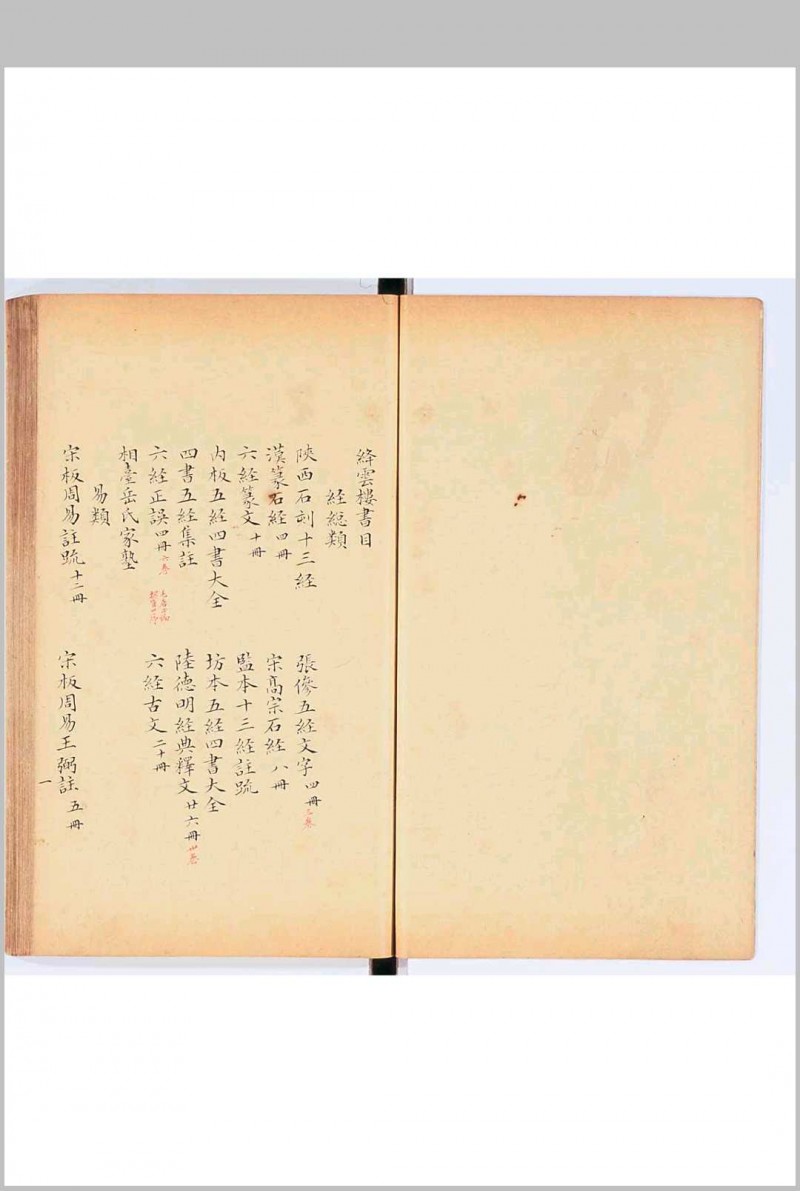 絳雲樓書目
經總類
陝西石刻十三經
張參五經文字 四冊 三卷
漢篆石經 四冊
宋高宗石經 八冊
六經篆文 十冊
監本十三經註疏
內板五經四書大全
坊本五經四書大全
四書五經集註
陸德明經典釋文 廿六冊 卅卷
六經正誤 四冊 六卷
六經古文 二十冊
相臺岳氏家塾
易類
宋板周易註疏 十二冊
宋板周易王弼註 五冊
一